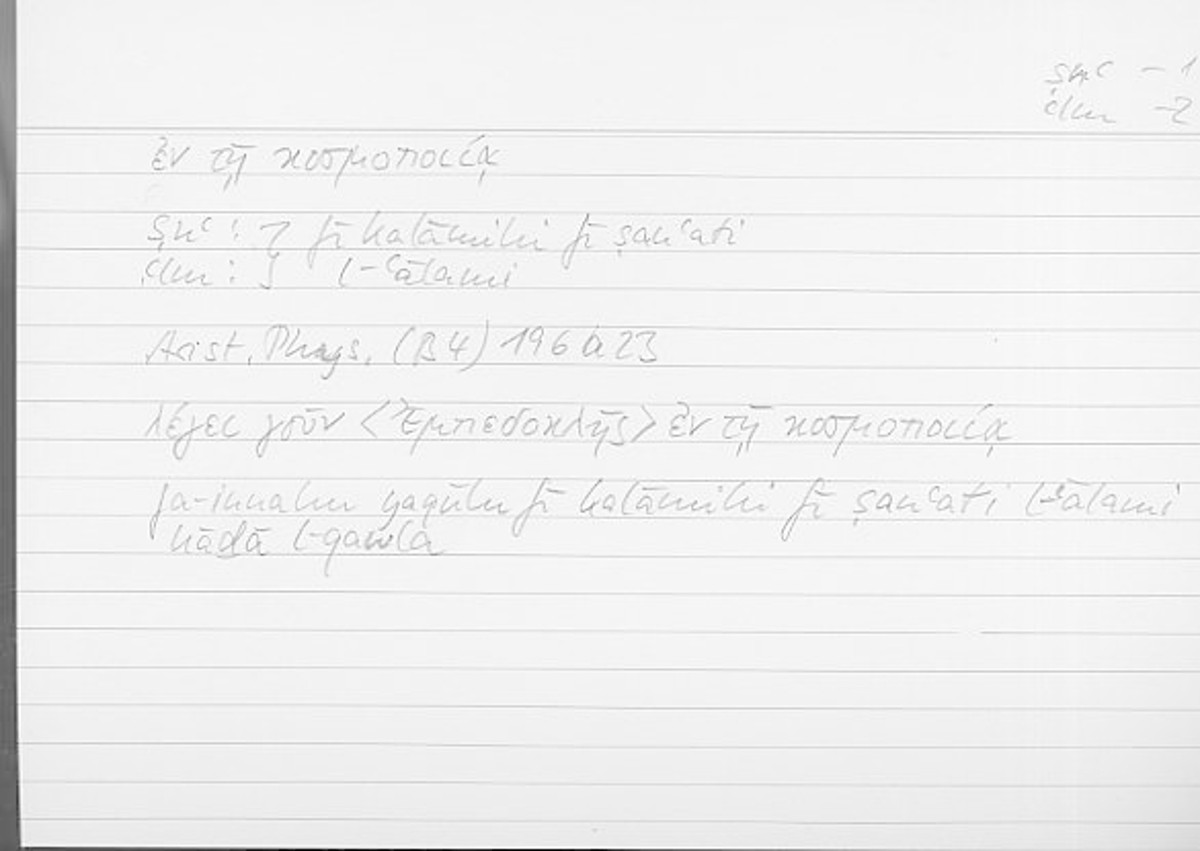 ṣnʿ – 1
ʿlm – 2
ἐν τῇ κοσμοποιίᾳ
ṣnʿ : } fī kalāmihi fī ṣanʿati
ʿlm : } l-ʿālami
Arist. Phys. (B 4) 196 a 23
λέγει γοῦν <Ἐμπεδοκλῆς> ἐν τῇ κοσμοποιίᾳ
fa-innahu yaqūlu fī kalāmihi fī ṣanʿati l-ʿālami
hāḏā l-qawla